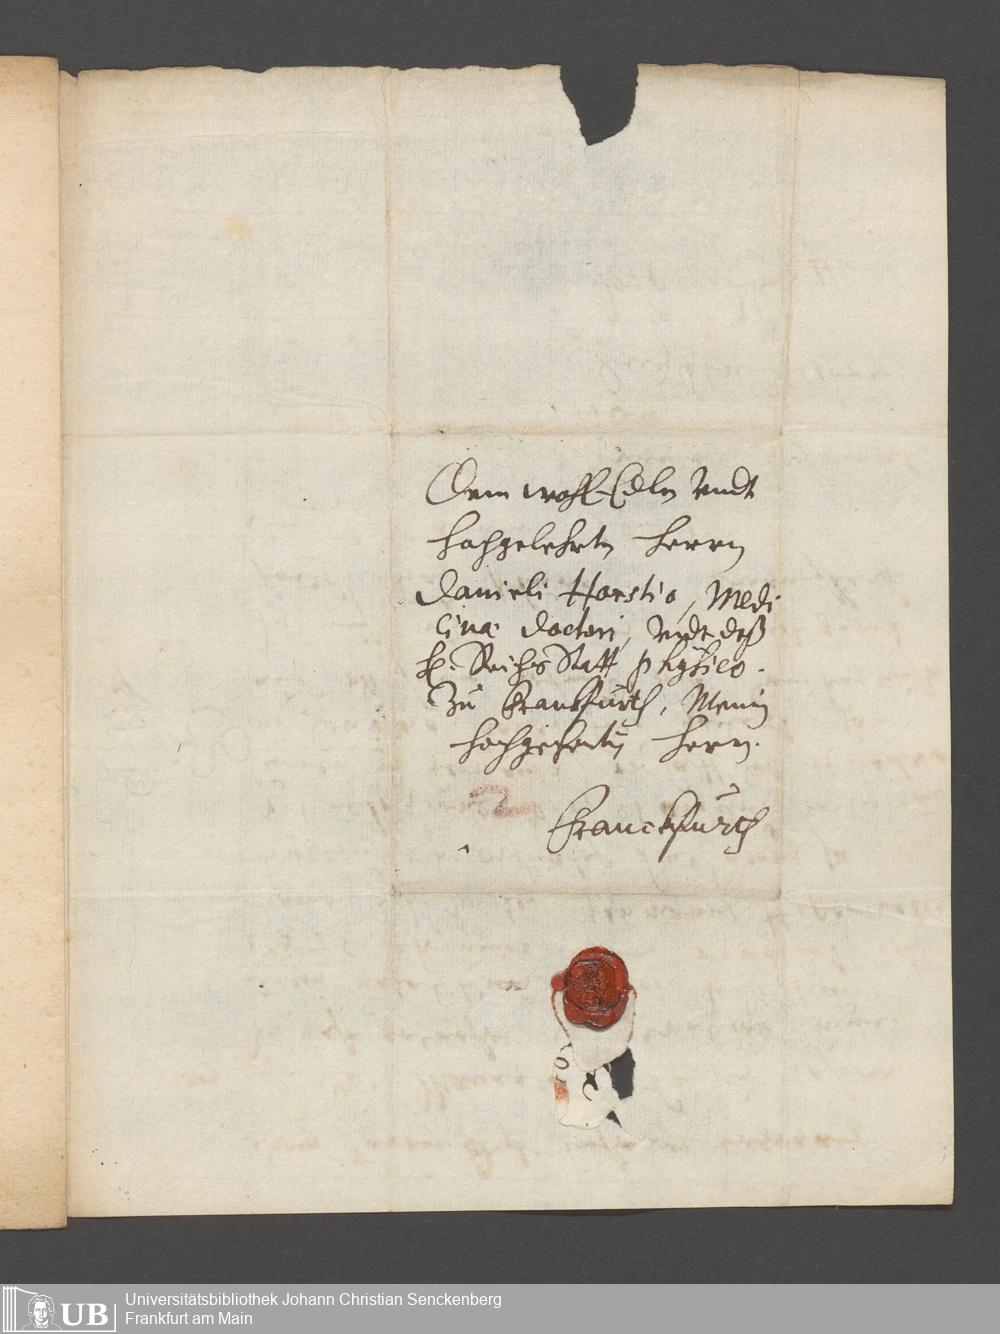 Dem wohl-Edeln vndt
hochgelehrten Herrn
Danieli Horstio, Medi
cinæ Doctori, vndt deß
H. Reichs Statt physico.
Zu Franckfurth, Meinem
hochgeehrten Herrn.
2
Franckfurth
Universitätsbibliothek Johann Christian Senckenberg
Frankfurt am Main
UB